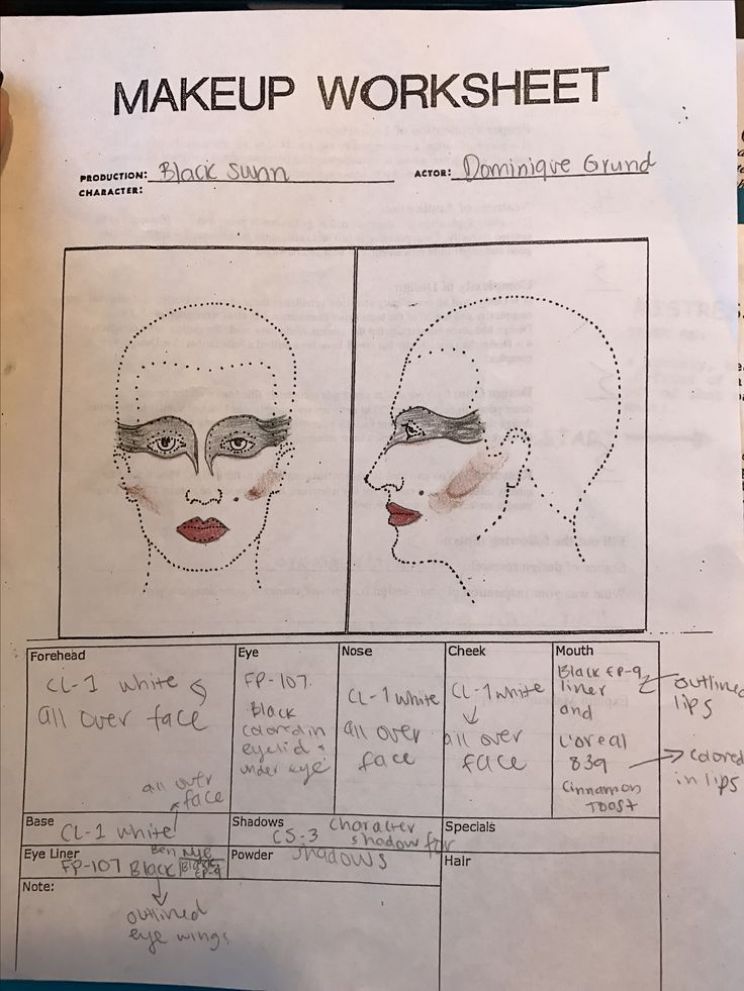 MAKEUP WORKSHEET
PRODUCTION: Black Swan
ACTOR: Dominique Grund
CHARACTER:
Forehead
CL-1 white
all over face
all over
face
Eye
FP-107
Black
colored in
eyelid +
under eye
Nose
CL-1 white
all over
face
Cheek
CL-1 white
all over
face
Mouth
Black EP-9
liner
and
L'oreal
839
Cinnamon
TOOST
outlined
lips
colored
in lips
Base
CL-1 white
Shadows
CS-3 Character
shadow for
shadows
Specials
Eye Liner
FP-107 Black
Ben Nye
Black
EP-9
Powder
Hair
Note:
outlined
eye wings